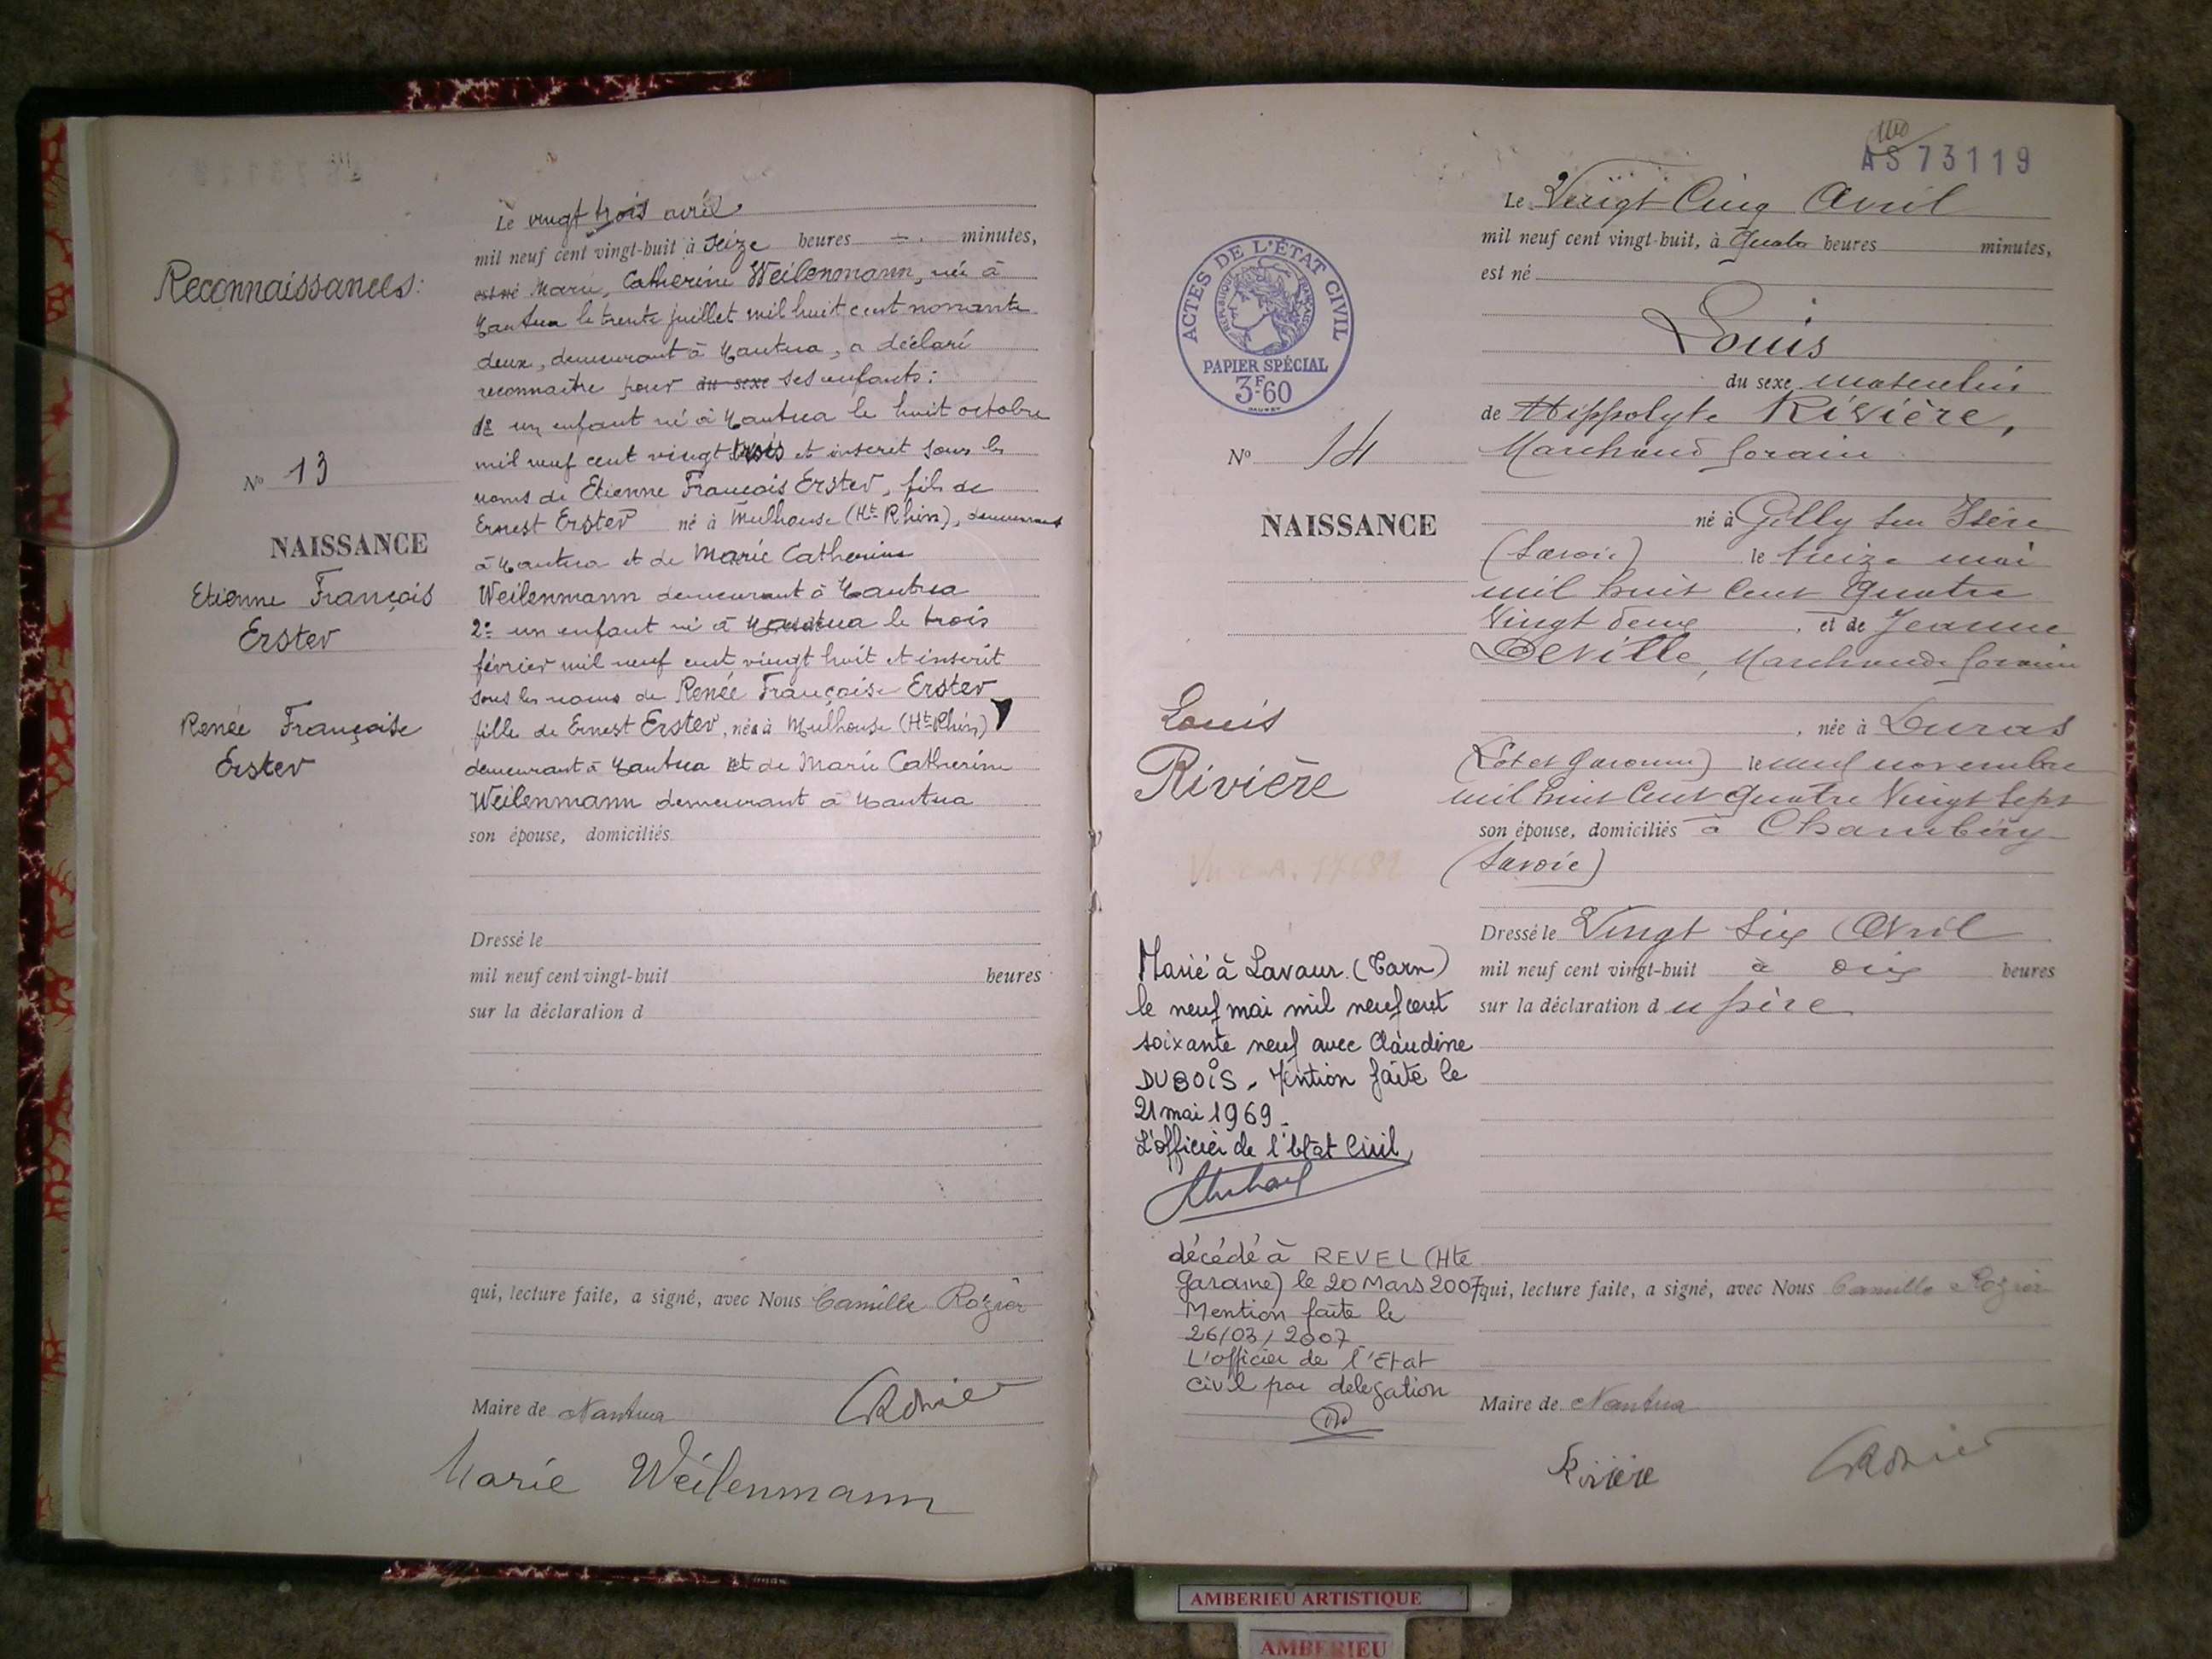 Reconnaissances:
N° 13
NAISSANCE
Etienne François
Erster
Renée Françoise
Erster
Le vingt trois avril
mil neuf cent vingt-huit à seize heures — minutes,
est né Marie, Catherine Weilenmann, née à
Nantua le trente juillet mil huit cent nonante
deux, demeurant à Nantua, a déclaré
reconnaitre pour du sexe ses enfants:
1° un enfant né à Nantua le huit octobre
mil neuf cent vingt trois et inscrit sous les
noms de Etienne François Erster, fils de
Ernest Erster né à Mulhouse (Ht-Rhin), demeurant
à Nantua et de Marie Catherine
Weilenmann demeurant à Nantua
2° un enfant né à Nantua le trois
février mil neuf cent vingt huit et inscrit
sous les noms de Renée Françoise Erster
fille de Ernest Erster, né à Mulhouse (Ht-Rhin)
demeurant à Nantua et de Marie Catherine
Weilenmann demeurant à Nantua
son épouse, domiciliés
Dressé le
mil neuf cent vingt-huit heures
sur la déclaration d
qui, lecture faite, a signé, avec Nous Camille Rozier
Maire de Nantua
Marie Weilenmann
AS 73119
ACTES DE L'ÉTAT CIVIL
RÉPUBLIQUE FRANÇAISE
PAPIER SPÉCIAL
3F60
N° 14
NAISSANCE
Louis
Rivière
Marié à Lavaur (Tarn)
le neuf mai mil neuf cent
soixante neuf avec Claudine
DUBOIS. Mention faite le
21 mai 1969.
L'officier de l'Etat Civil,
décédé à REVEL (Hte
Garonne) le 20 Mars 2007
Mention faite le
26/03/2007
L'officier de l'Etat
Civil par delegation
Le Vingt Cinq Avril
mil neuf cent vingt-huit, à quatre heures minutes,
est né
Louis
du sexe masculin
de Hippolyte Rivière,
Marchand forain
né à Gilly sur Isère
(Savoie) le treize mai
mil huit cent quatre
Vingt deux, et de Jeanne
Deville, Marchande foraine
, née à Duras
(Lot et Garonne) le neuf novembre
mil huit cent quatre Vingt Sept
son épouse, domiciliés à Chambéry
(Savoie)
Dressé le Vingt Six Avril
mil neuf cent vingt-huit à dix heures
sur la déclaration du père
qui, lecture faite, a signé, avec Nous Camille Rozier
Maire de Nantua
Rivière
AMBERIEU ARTISTIQUE
AMBERIEU